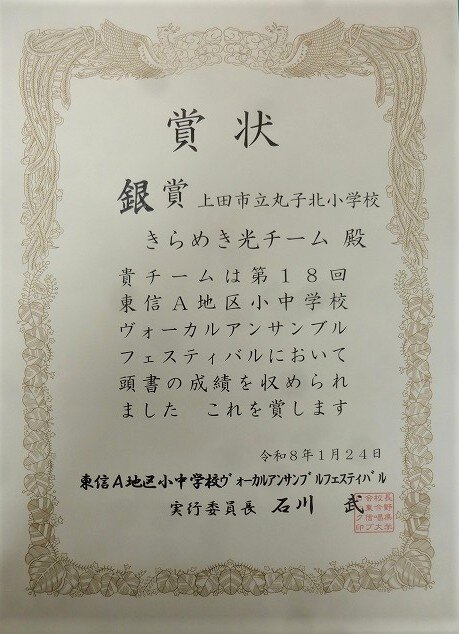 賞状
銀賞 上田市立丸子北小学校
きらめき光チーム 殿
貴チームは第18回
東信A地区小中学校
ヴォーカルアンサンブル
フェスティバルにおいて
頭書の成績を収められ
ました これを賞します
令和8年1月24日
東信A地区小中学校ヴォーカルアンサンブルフェスティバル
実行委員長 石川 武